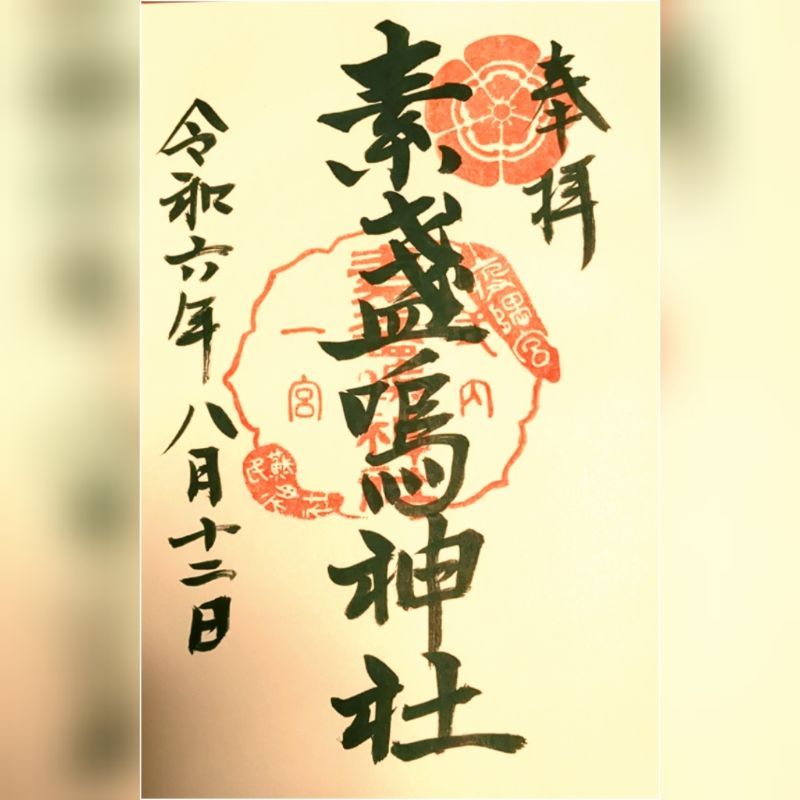 奉拝
素盞嗚神社
一宮
令和六年八月十二日